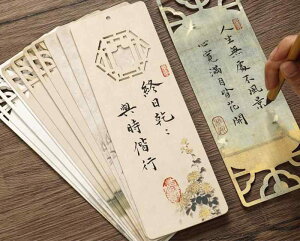 終日乾〻
與時偕行
人生無處不風景
心寬滿目皆花開